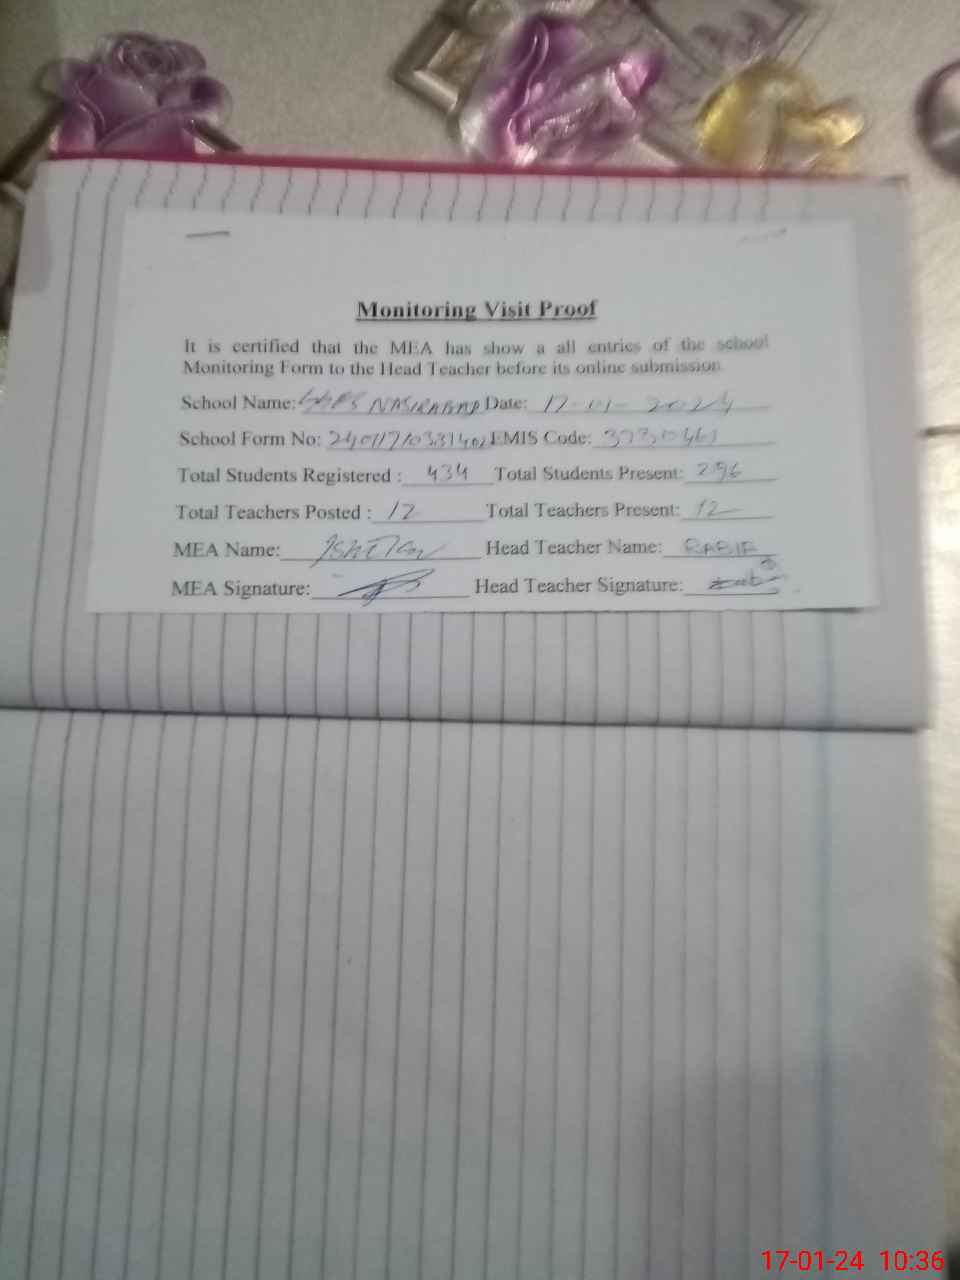 Monitoring Visit Proof
It is certified that the MEA has show a all entries of the school
Monitoring Form to the Head Teacher before its online submission.
School Name: NASIRABAD Date: 17-01-2024
School Form No: EMIS Code:
Total Students Registered : 434 Total Students Present: 296
Total Teachers Posted : 12 Total Teachers Present: 12
MEA Name: Head Teacher Name: RABIA
MEA Signature: Head Teacher Signature:
17-01-24 10:36